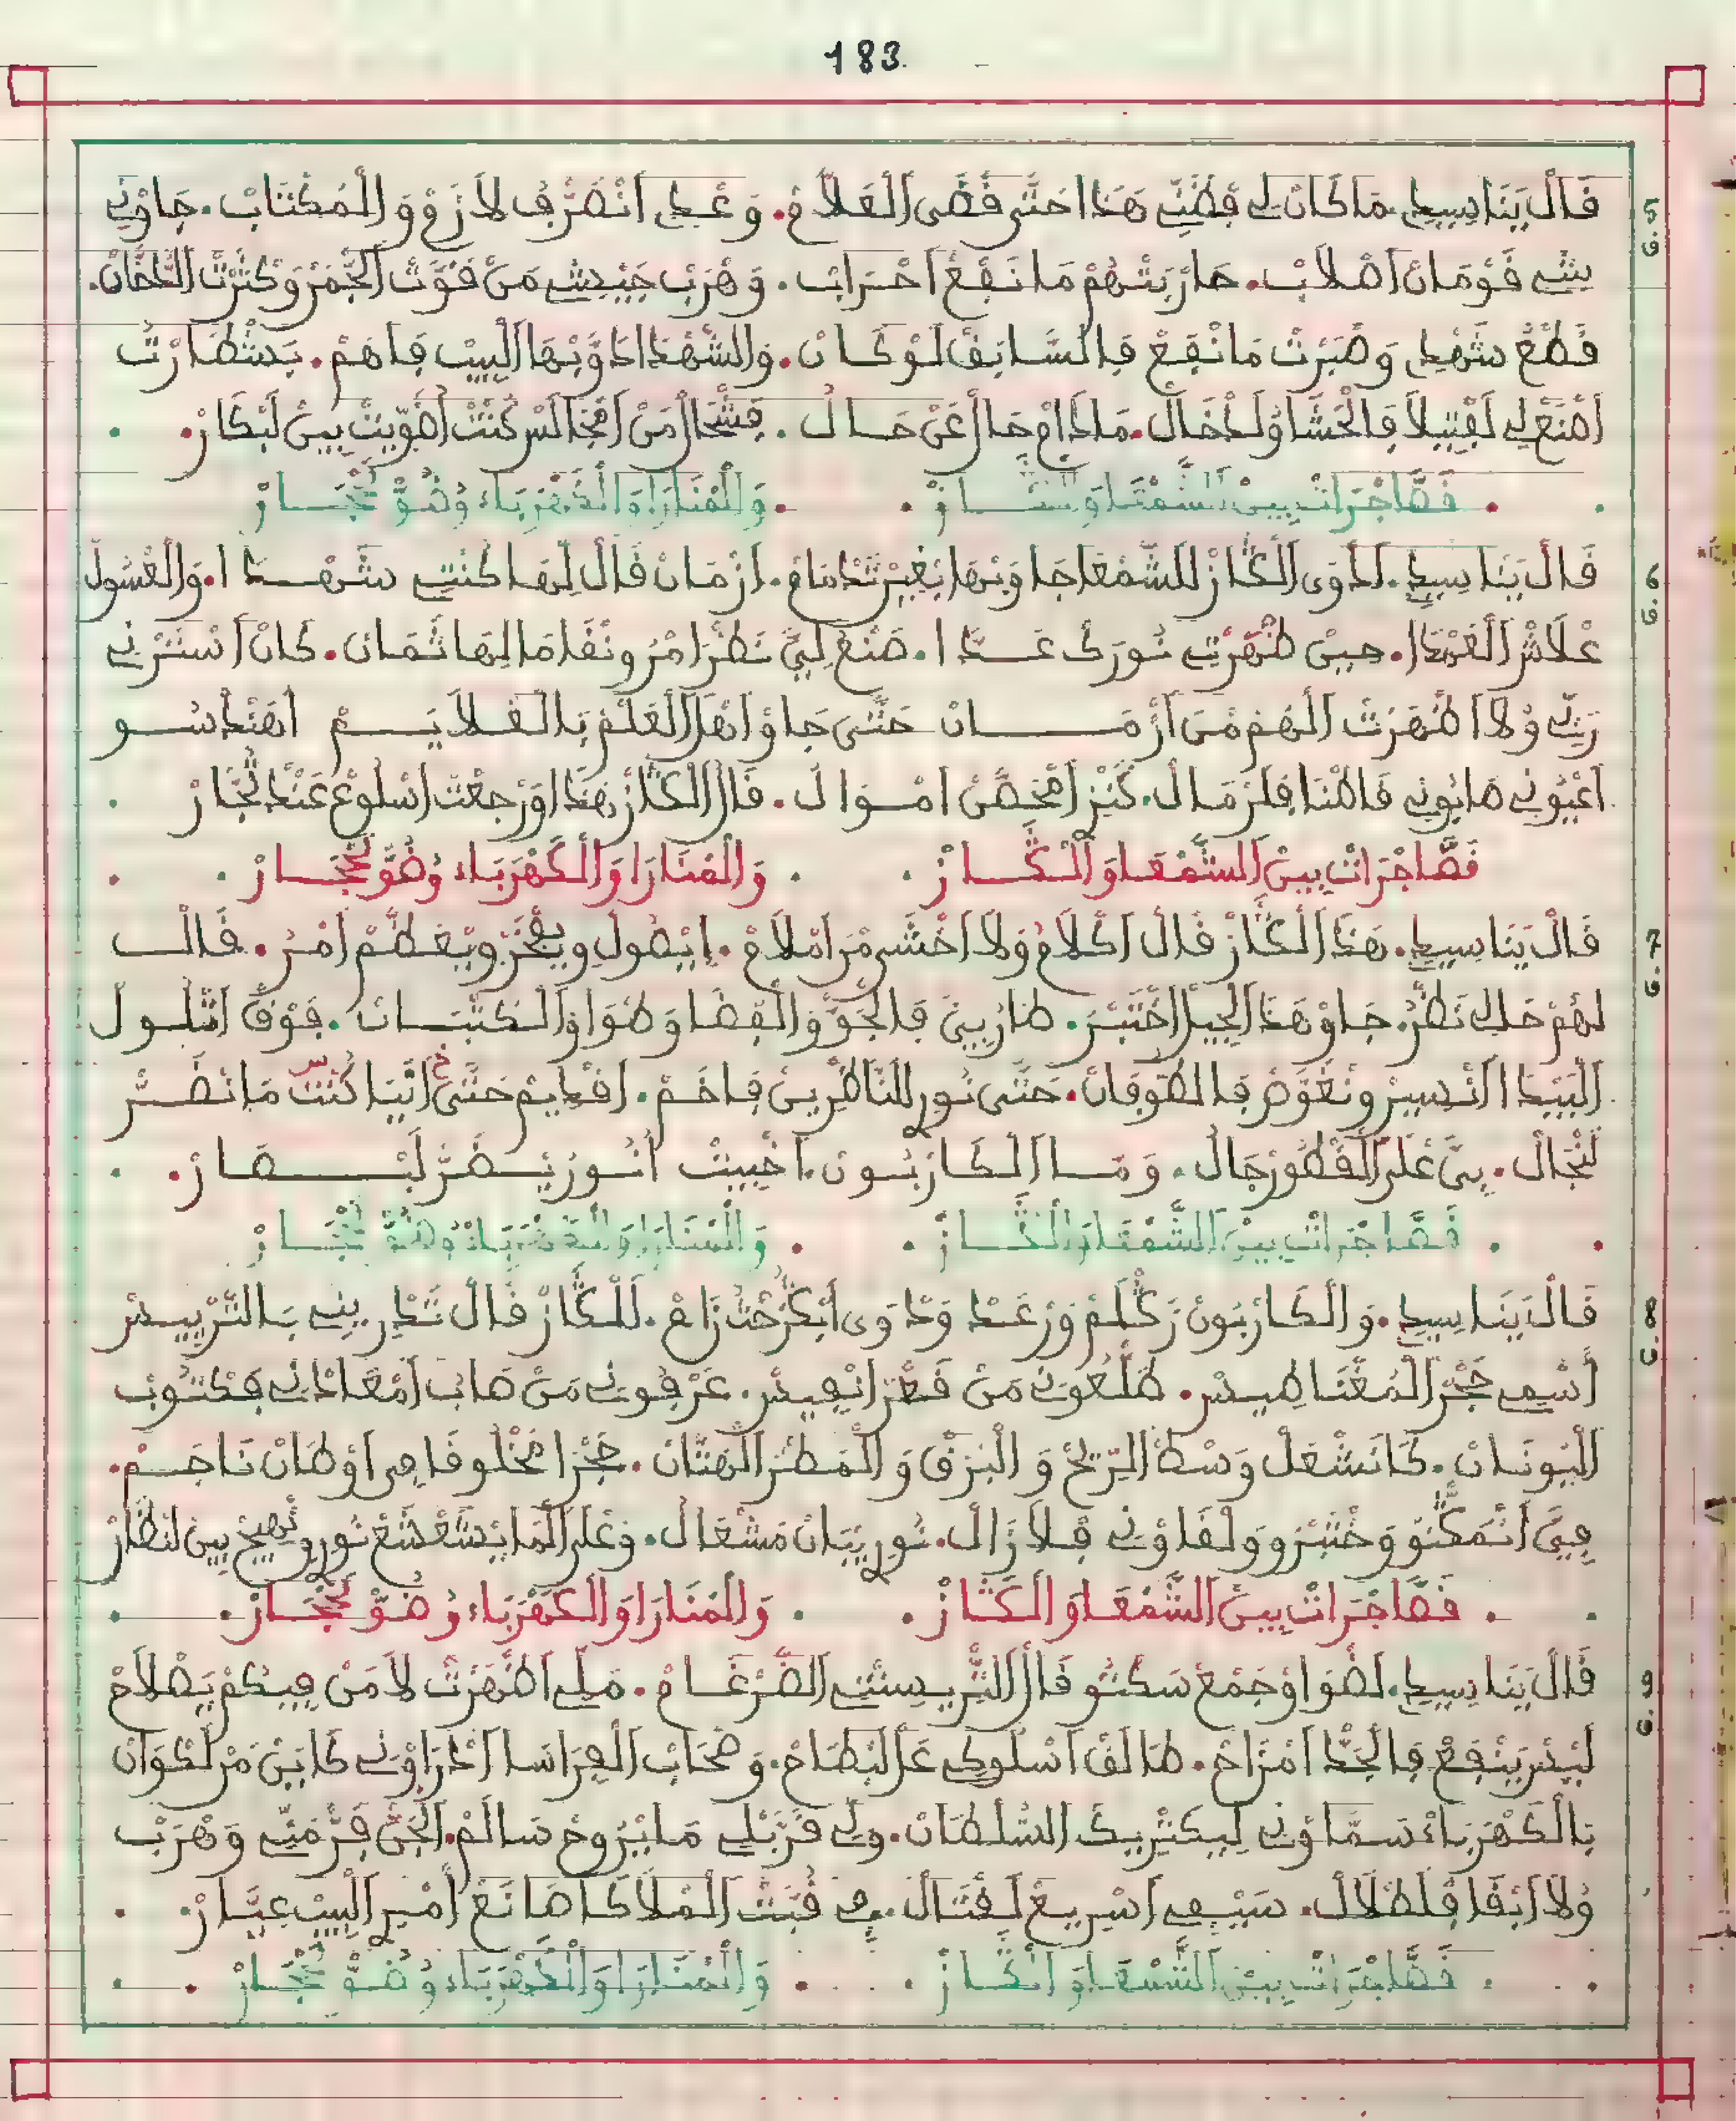 183
5 ق
قَالْ يَنَا سِيدِ مَا كَانْ لِي فَضْتِي هَذَا حَتَّى فْضَى الْغْلَامْ. وَعْدِي انْضَرَّفْ لَا زَهْوْ وَ الْمُكْتَابْ. جَاوْنِي
بْشِي قَوْمَانْ اصْلَابْ. حَارْبَتْهُمْ مَا نْفَعْ احْرَابْ. وَهْرَبْ جَيْشِي مَنْ قَوَّتْ الْجْمَرْ وَكَثْرَتْ الدُّخَّانْ.
قَطْعْ شَهْدِي وَصْبَرْتْ مَا نْفَعْ فَالسَّابَقْ لَوْ كَانْ. وَالشَّهْدَا دَاوِّيْهَا الْبِيبْ فَاهَمْ.
اصْنَعْ لِي لَفْتِيلَا فَالْحْشَا وُلَدْخَالْ. مَاذَا مْ حَالْ عَنْ حَالْ. فَشْحَالْ مَنْ امْجَالَسْ كُنْتْ اضْوِّيتْ بِينْ لَبْكَارْ.
قْصَّا جْرَاتْ بِينْ الشَّمْعَا وَ الْكَازْ. وَالْمْنَارَا وَالْكَهْرَبَاء وُضَوّ
6 ق
قَالْ يَنَا سِيدِ. ادْوَى الْكَازْ لَلشَّمْعَا جَاوَبْهَا بْغِيرْ نْدَامَا. ازْمَانْ قَالْ لِهَا كُنْتِ شَهْدَا. وَالْعْسُولْ
عْلَاشْ الْعَهْدَا. حِينْ ظْهَرْتِي نُورَكْ غَدَّا. صْنَعْ لِيَّ نَظْرَا مْرُونْقَا مَا لِهَا ثْمَانْ. كَانْ اسْتَرْنِي
رَبِّي وُلَا اظْهَرْتْ الْهُمْ مْنَ ازْمَانْ حَتَّى جَاوْ اهْلْ الْعَلْمْ بَالْعْلَايَمْ اهَنْدْسُو
اعْبُونِي صَابُونِي فَامْنَا فَلَرْمَالْ. كَنْزْ امْخَصَّنْ امْوَالْ. قَالْ الْكَازْ هَذَا وَرْجَعْتْ اسْلُوعْ عَنْدْ تْجَّارْ
قْصَّا جْرَاتْ بِينْ الشَّمْعَا وَالْكَازْ. وَالْمْنَارَا وَالْكَهْرَبَاء وُضَوّ
7 ق
قَالْ يَنَا سِيدِ. هَذَا الْكَازْ قَالْ اكْلَامْ وَلَا اخْشَى مْرَا مْلَامْ. ايْصُولْ وِيفْخَرْ وِيْعَظَّمْ امْرُ. قَالْ
لْهُمْ حَالِي نَظْرُ. جَاوْ هَذَا الْجِيلْ اخْتَبْرْ. طَارْ بِيَّ فَالْجَوّ وَ الْفْضَا وَ ضْوَاوْ الْكُتْبَانْ. فَوْقْ اتْلُولْ
الْبَيْدَا انْسِيرْ وَنْغَوَّصْ فَالطُّوفَانْ. حَتَّى نُورِ لَلنَّاظْرِينْ فَاخَمْ. اقْدِيمْ حَتَّى انَّيَا كُنْتْ مَا انْضَرّ
لَنْجَالْ. بِيَّ عْلَى الْقْطُورْ جَالْ. وَمَا الْكَارْبُونْ. اخْبِيثْ انُورْ يْضَرّ لَبْصَارْ.
قْصَّا جْرَاتْ بِينْ الشَّمْعَا وَالْكَازْ. وَالْمْنَارَا وَالْكَهْرَبَاء وُضَوّ
8 ق
قَالْ يَنَا سِيدِ. وَالْكَارْبُونْ زَكْلَمْ وَرْعَدْ وَدْوَى. لَلْكَازْ قَالْ تَدْرِينِي بَالتَّرْبِيسْ
اسْمِي حْجَرْ الْمُغْنَاطِيسْ. طَلْعُونِي مَنْ قَعْرْ انْفِيسْ. عَرْفُونِي مَنْ صَابْ امْعَادْنِي فَكْتُوبْ
الْيُونَانْ. كَانَشْعَلْ وَسْطْ الرِّيحْ وَ الْبَرْقْ وَ الْمْطَرْ الْهَتَّانْ. حْجَرْ امْخْلُوقَا فِي اوْطَانْ نَاجَمْ.
فِيَّ اتْمَكّنُو وَخْتَبْرُو وَلْقَاوْنِي فَلَازَالْ. نُورِي بَانْ مَشْعَالْ. وَعْلَى الْمَا يْشَعْشَعْ نُورِ بِينْ لَنْظَارْ
قْصَّا جْرَاتْ بِينْ الشَّمْعَا وَ الْكَازْ. وَالْمْنَارَا وَالْكَهْرَبَاء وُضَوّ
9 ق
قَالْ يَنَا سِيدِ. لَضْوَاوْ جَمْعْ سَكْتُو قَالْ التْرِيسِنْتِي الضَّرْغَامْ. مَلِّي اظْهَرْتْ لَا مَنْ فِيكُمْ يَصْلَاحْ
لَيْسْ يَنْفَعْ فَالْجَدّ امْزَاحْ. طَالَقْ اسْلُوكِي عَالْبْطَاحْ. وَصْحَابْ الْفِرَاسَا ادْرَاوْنِي كَايَنْ مَنْ لَكْوَانْ
بَالْكَهْرَبَاءْ سَمَّاوْنِي لِيكْتْرِيكْ السُّلْطَانْ. وِلِي قَرَّبْلِي مَا يْرُوحْ سَالَمْ. الْجَنّ فَرّ مَنِّي وَهْرَبْ
وُلَا ابْقَا فَلَطْلَالْ. سَيْفِي اسْرِيعْ لَقْتَالْ. فِي قُبَّتْ الْمْلَا كَاصَانَعْ امِيرْ عِيَّارْ.
قْصَّا جْرَاتْ بِينْ الشَّمْعَا وَ الْكَازْ. وَالْمْنَارَا وَالْكَهْرَبَاء وُضَوّ